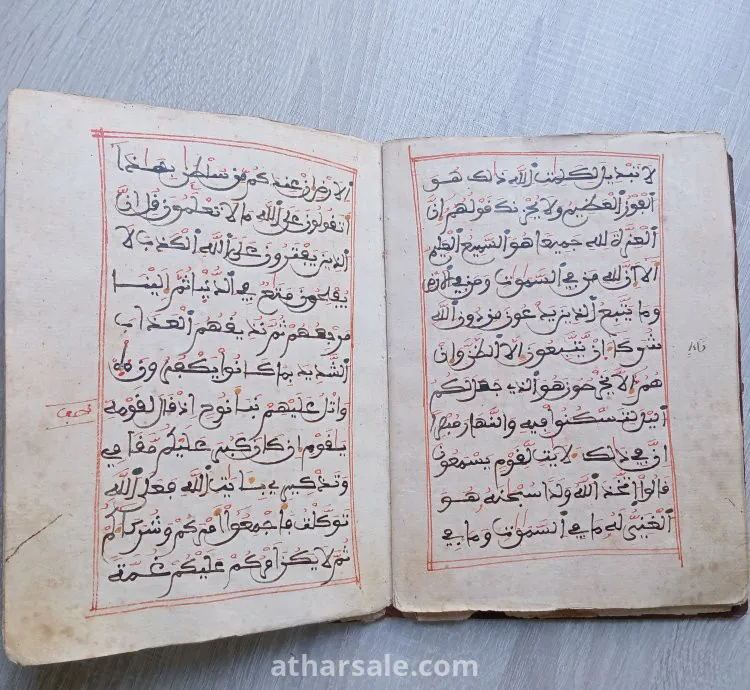 لا تبديل لكلمت الله ذلك هو
الفوز العظيم ولا يحزنك قولهم ان
العزة لله جميعا هو السميع العليم
الا ان لله من في السموت ومن في الارض
وما يتبع الذين يدعون من دون الله
شركاء ان يتبعون الا الظن وان
هم الا يخرصون هو الذي جعل لكم
اليل لتسكنوا فيه والنهار مبصرا
ان في ذلك لايت لقوم يسمعون
قالوا اتخذ الله ولدا سبحنه هو
الغني له ما في السموت وما في
الارض ان عندكم من سلطن بهذا
اتقولون على الله ما لا تعلمون قل ان
الذين يفترون على الله الكذب لا
يفلحون متع في الدنيا ثم الينا
مرجعهم ثم نذيقهم العذاب
الشديد بما كانوا يكفرون
نصف
واتل عليهم نبا نوح اذ قال لقومه
يقوم ان كان كبر عليكم مقامي
وتذكيري بايت الله فعلى الله
توكلت فاجمعوا امركم وشركاءكم
ثم لا يكن امركم عليكم غمة
atharsale.com